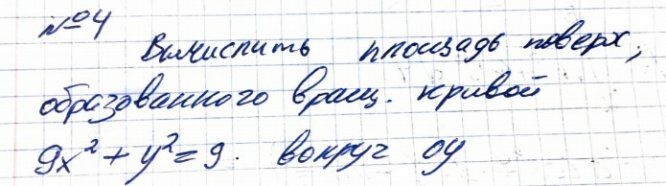 №4
Вычислить площадь поверх,
образованного вращ. кривой
9x² + y² = 9. вокруг oy